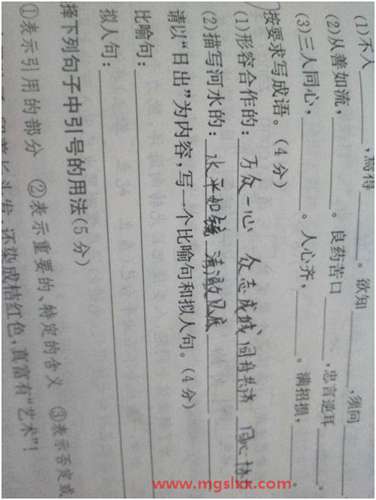 (1)不入______,焉得______。欲知______,须问______
(2)从善如流,______。良药苦口______,忠言逆耳______。
(3)三人同心,______。人心齐,______。满招损,______。
按要求写成语。(4分)
(1)形容合作的:万众一心 众志成城 同舟共济 同心协
(2)描写河水的:水平如镜 清澈见底
请以“日出”为内容,写一个比喻句和拟人句。(4分)
比喻句:
拟人句:
择下列句子中引号的用法(5分)
①表示引用的部分 ②表示重要的、特定的含义 ③表示否定或
着长头发,还染成桔红色,真富有“艺术”!
www.mgslxx.com